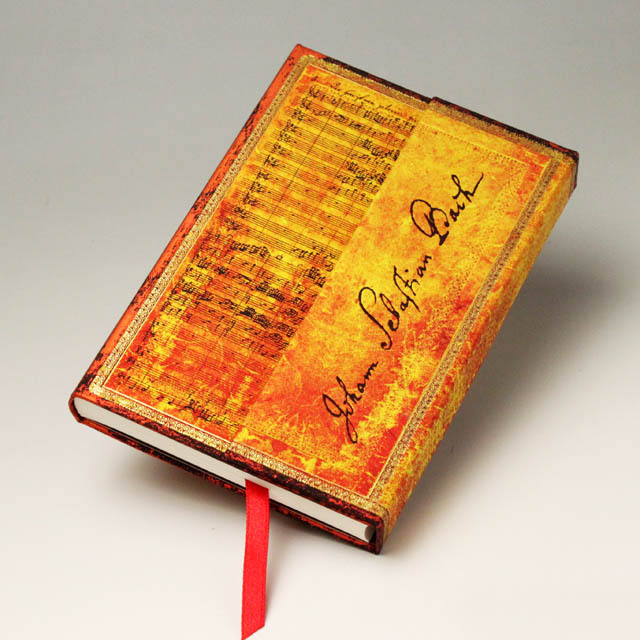 Johann Sebaſtian Bach